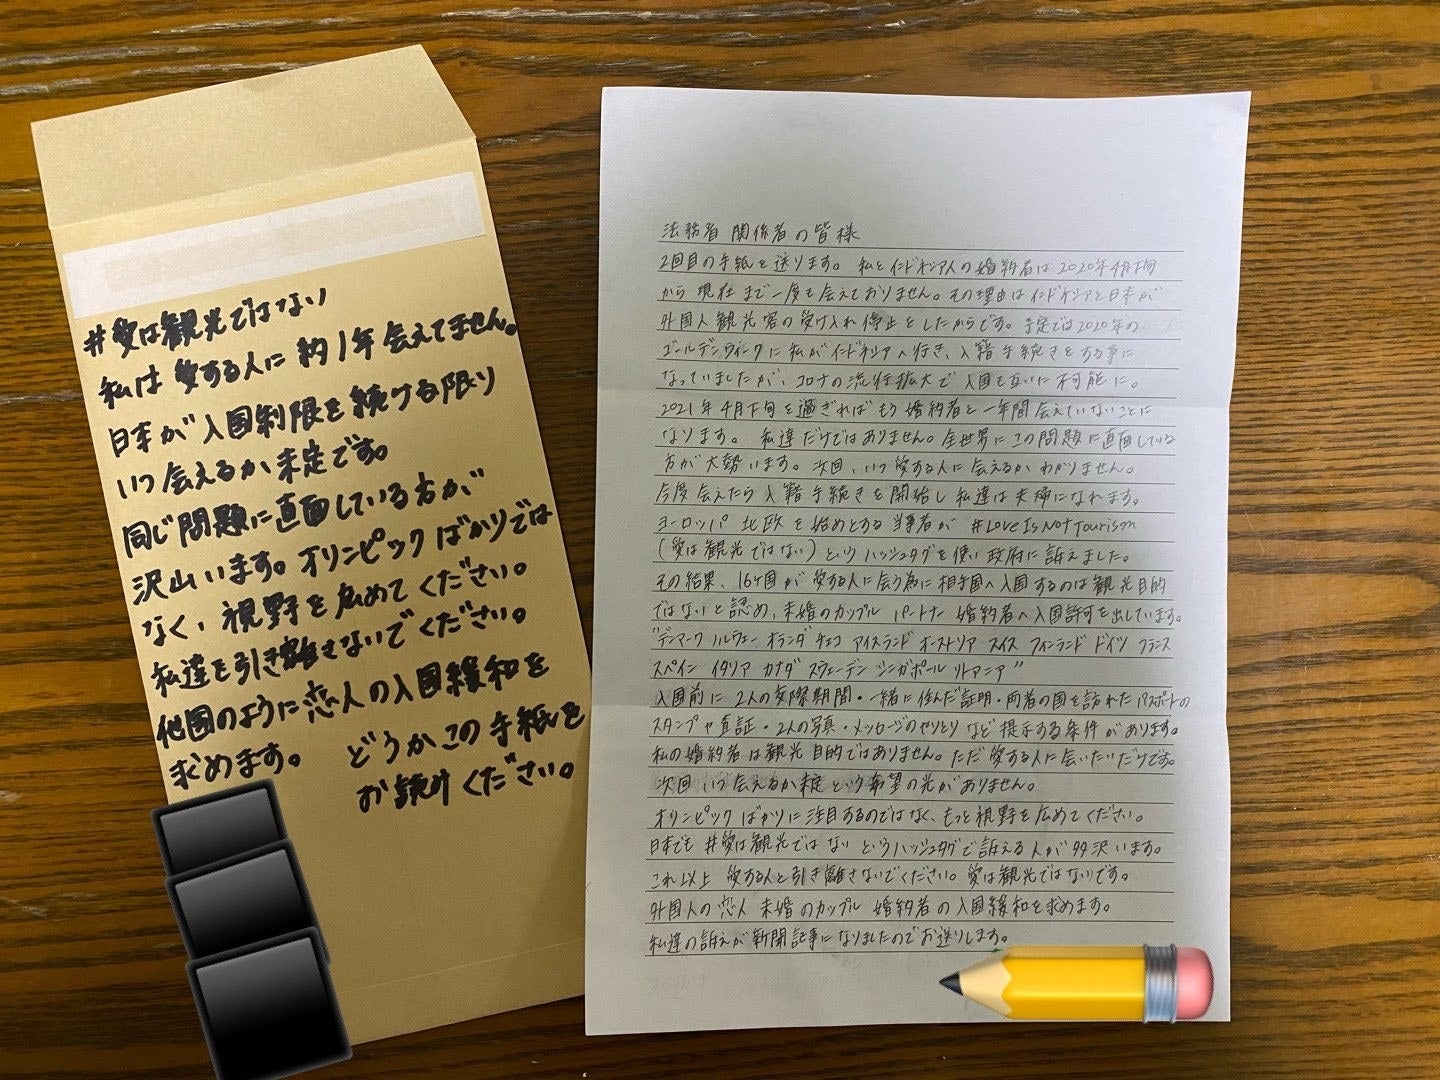 #愛は観光ではない
私は愛する人に約1年会えてません。
日本が入国制限を続ける限り
いつ会えるか未定です。
同じ問題に直面している方が
沢山います。オリンピックばかりでは
なく、視野を広めてください。
私達を引き離さないでください。
他国のように恋人の入国緩和を
求めます。 どうかこの手紙を
お読みください。
法務省関係者の皆様
2回目の手紙を送ります。私とインドネシア人の婚約者は2020年4月下旬
から現在まで一度も会えておりません。その理由はインドネシアと日本が
外国人観光客の受け入れ停止をしたからです。予定では2020年の
ゴールデンウィークに私がインドネシアへ行き、入籍手続きをする事に
なっていましたが、コロナの流行拡大で入国も互いに不可能に。
2021年4月下旬を過ぎればもう婚約者と一年間会えていないことに
なります。私達だけではありません。全世界にこの問題に直面している
方が大勢います。次回、いつ愛する人に会えるかわかりません。
今度会えたら入籍手続きを開始し私達は夫婦になれます。
ヨーロッパ 北欧を始めとする当事者が #LoveIsNotTourism
(愛は観光ではない)というハッシュタグを使い政府に訴えました。
その結果、16ヶ国が愛する人に会う為に相手国へ入国するのは観光目的
ではないと認め、未婚のカップル パートナー 婚約者へ入国許可を出しています。
"デンマーク ノルウェー オランダ チェコ アイスランド オーストリア スイス フィンランド ドイツ フランス
スペイン イタリア カナダ スウェーデン シンガポール リトアニア"
入国前に2人の交際期間・一緒に住んだ証明・両者の国を訪れたパスポートの
スタンプや査証・2人の写真・メッセージのやりとりなど提示する条件があります。
私の婚約者は観光目的ではありません。ただ愛する人に会いたいだけです。
次回いつ会えるか未定という希望の光がありません。
オリンピックばかりに注目するのではなく、もっと視野を広めてください。
日本でも #愛は観光ではない というハッシュタグで訴える人が多沢います。
これ以上 愛する人と引き離さないでください。愛は観光ではないです。
外国人の恋人 未婚のカップル 婚約者の入国緩和を求めます。
私達の訴えが新聞記事になりましたのでお送りします。